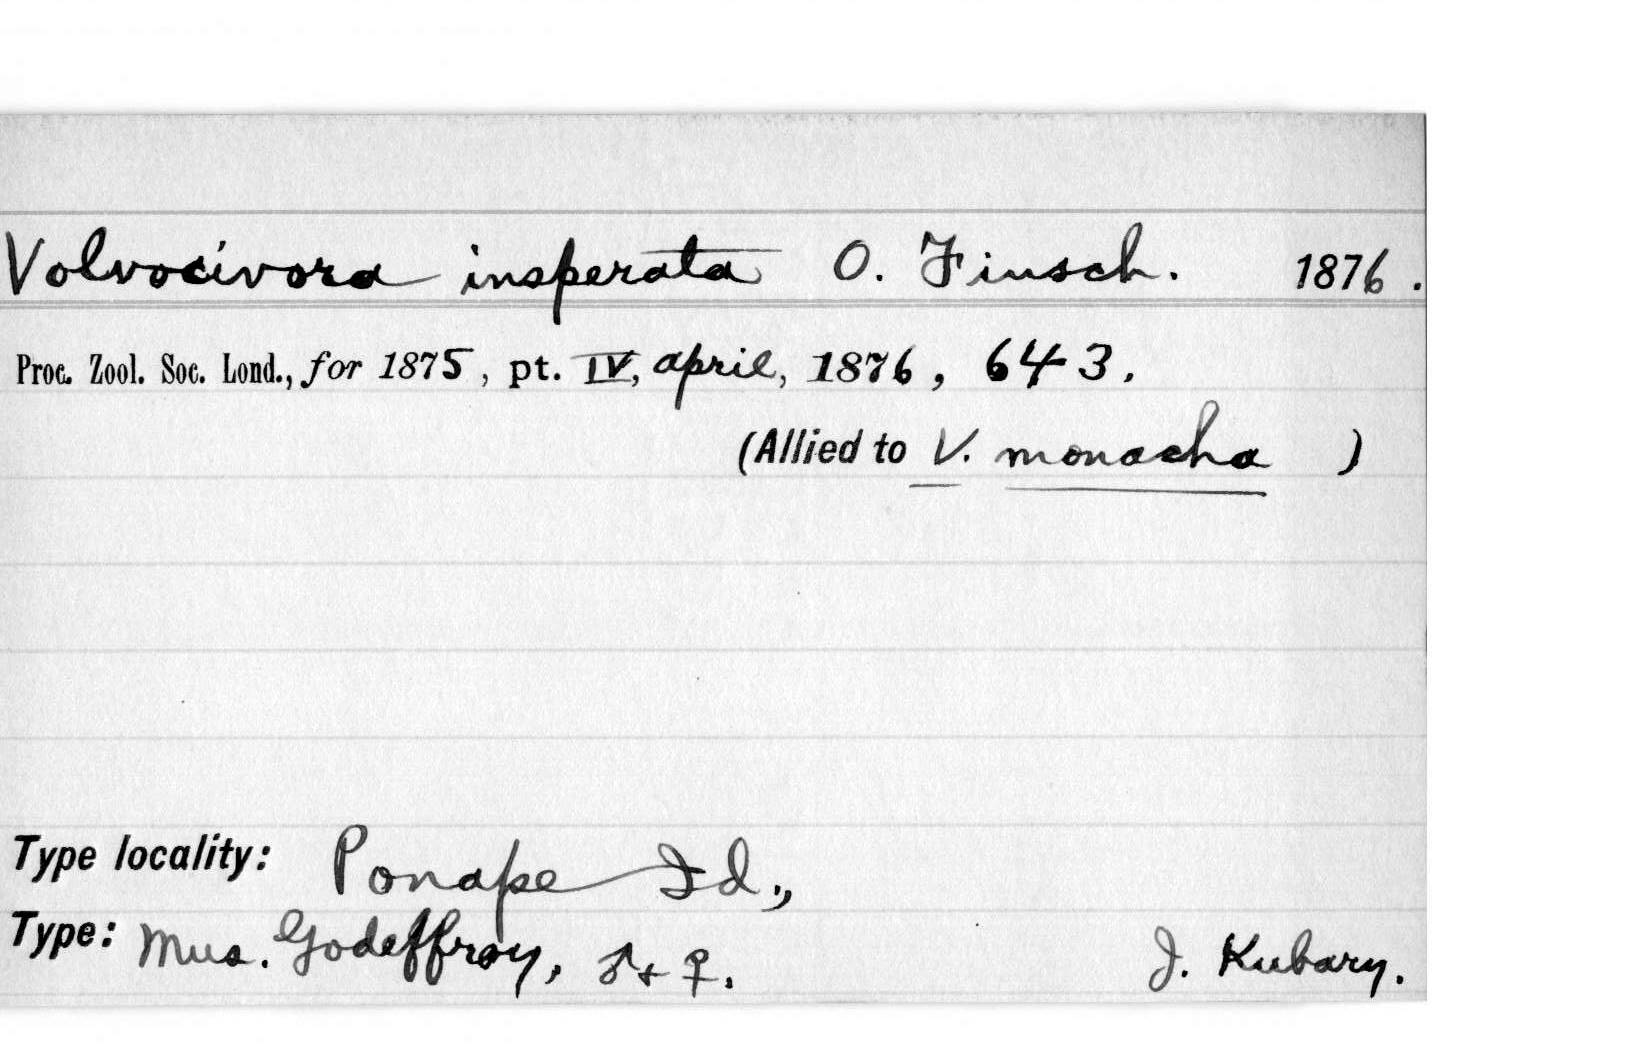 Volvocivora insperata O. Finsch. 1876.
Proc. Zool. Soc. Lond., for 1875, pt. IV, april, 1876, 643.
(Allied to V. monacha )
Type locality: Ponape Id.,
Type: Mus. Godeffroy, ♂ + ♀. J. Kubary.